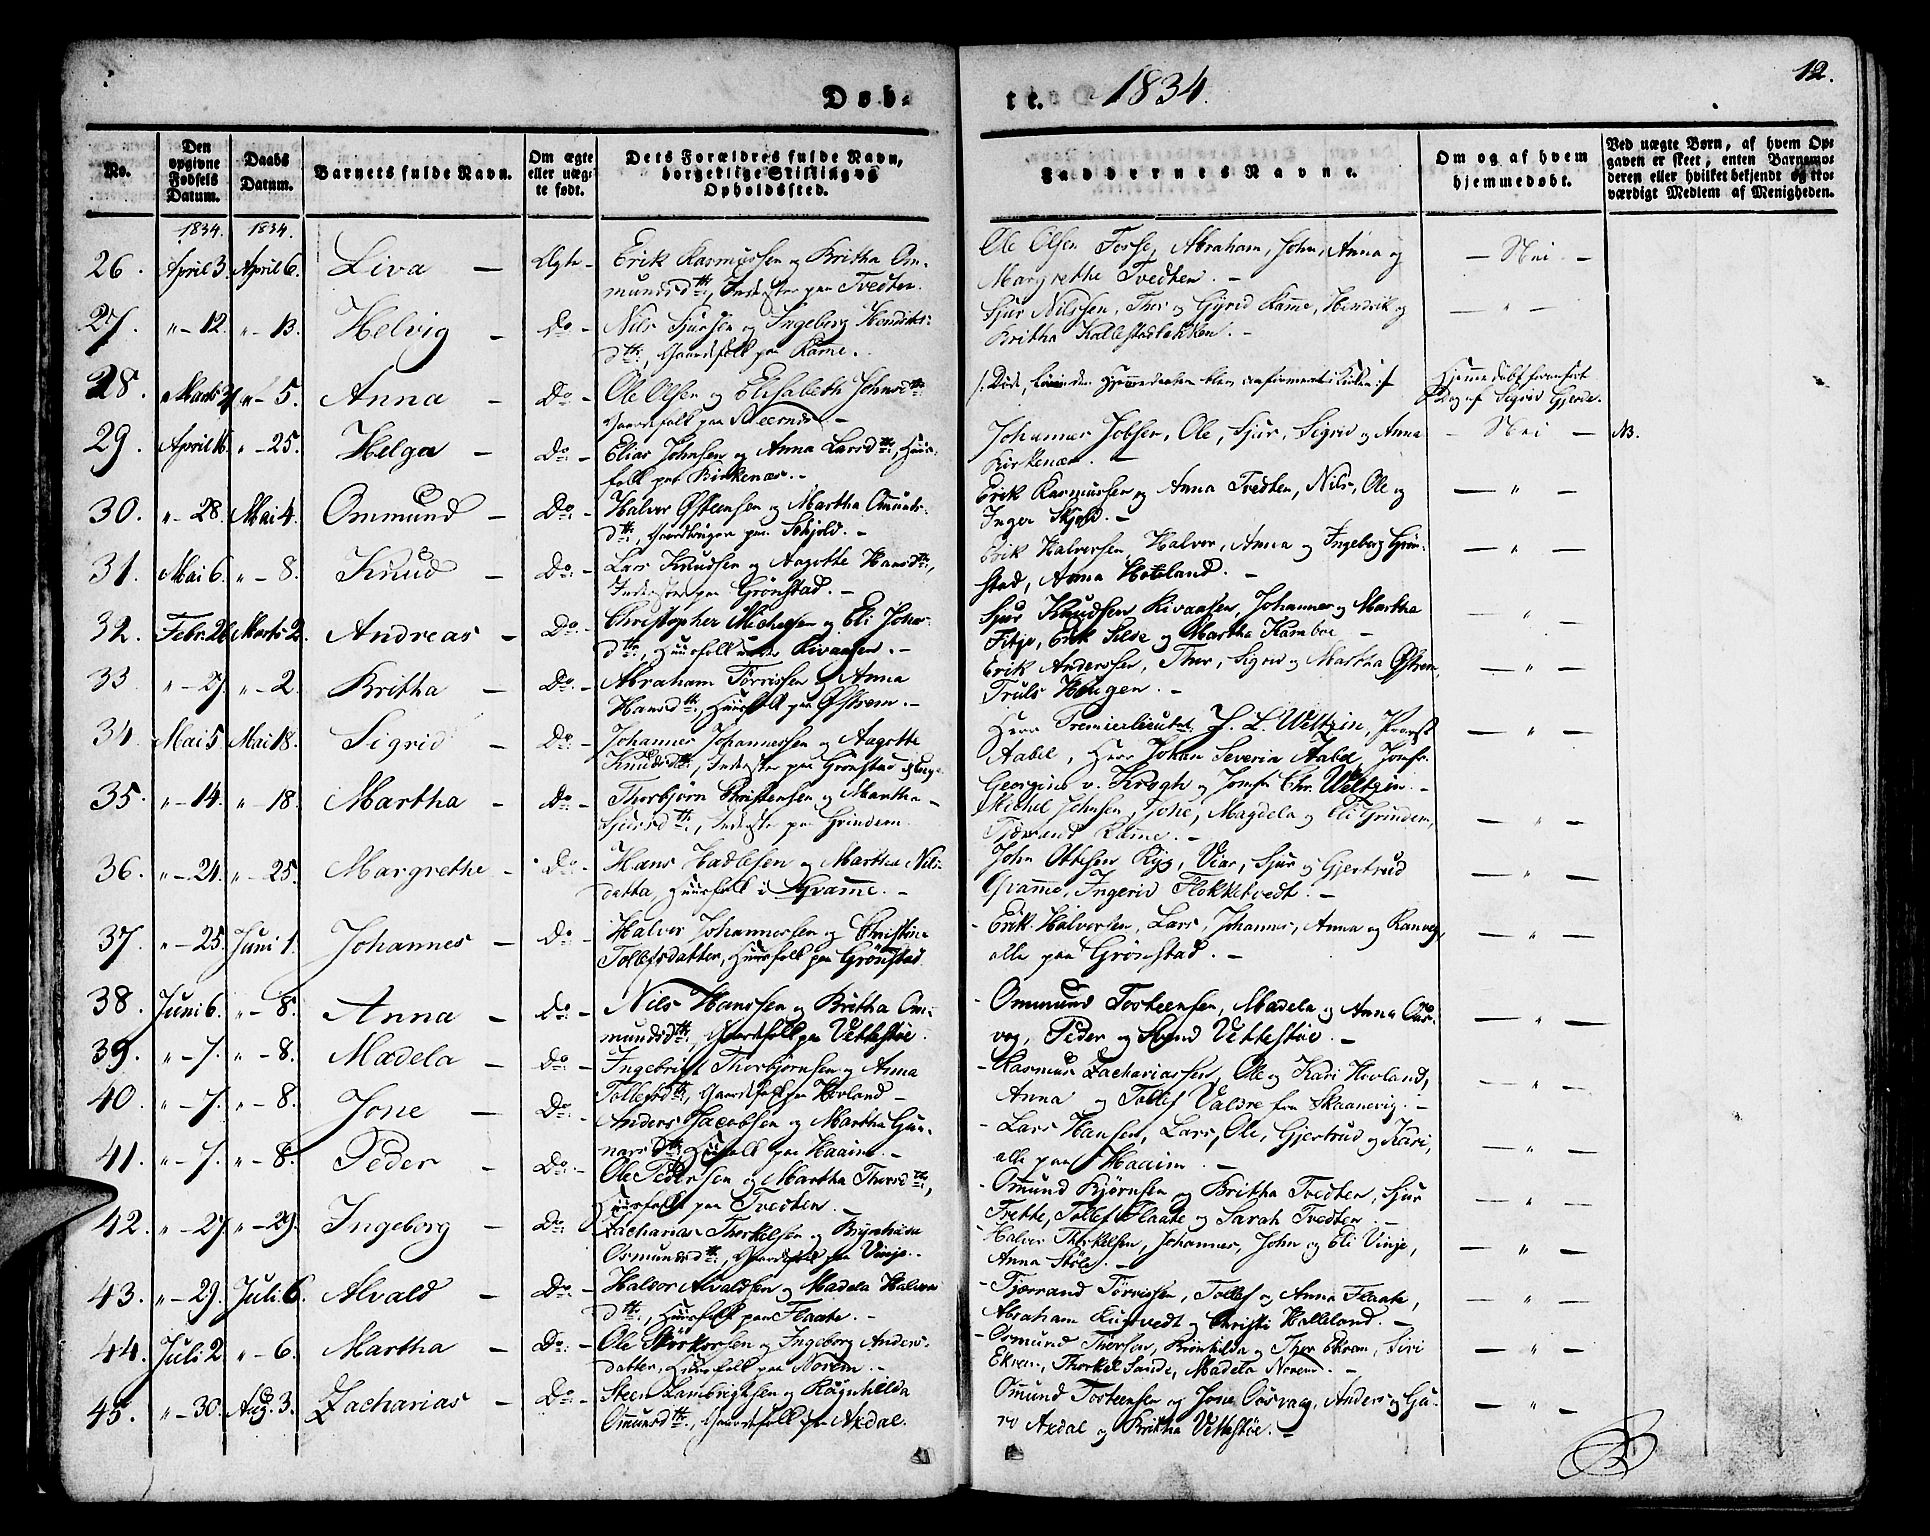 Døb-
te. 1834.
12.
No.
Den opgivne Fødsels Datum.
Daabs Datum.
Barnets fulde Navn.
Om ægte eller uægte født.
Dets Forældres fulde Navn, borgerlige Stilling og Opholdssted.
Faddernes Navne.
Om og af hvem hjemmedøbt.
Ved uægte Børn, af hvem Opgaven er skeet, enten Barnemoderen eller hvilket bekjendt og troværdigt Medlem af Menigheden.
1834. 1834.
26. April 3. April 6. Liva — Ægte – Erik Rasmussen og Britha Om-
mundsdttr:, Inderster paa Tvedten.
Ole Olsen Fosse, Abraham, John, Anna og
Margrethe Tvedten. –
– Nei –
27. " – 12. " – 13. Helvig – Do – Nils Sjursen og Ingeborg Hendriks-
dttr:, Gaardfolk paa Ramme.
Sjur Nilssen, Thor og Gyrid Ramme, Hendrik og
Britha Kallestadbakken. –
— " —
28. " Marts 31. " – 5. Anna – Do: – Ole Olsen og Elisabeth Johnsdttr:
Gaardfolk paa
/: Døde, førend Hjemmedaaben blev confirmeret i Kirken :/
Hjemmedøbt
Dag af Sigrid Gjerde.
29. April 16. " – 25. Helga – Do: – Elias Johnsen og Anna Larsdttr:, Huus-
folk paa Birkenæs. –
Johannes Jobsen, Ole, Sjur, Sigrid og Anna
Birkenæs. –
– Nei – NB.
30. " – 28. Mai 4. Ommund – Do: – Halvor Østeensen og Martha Omunds-
dttr:, Gaardbruger paa Skjold. –
Erik Rasmussen og Anna Tvedten, Nils, Ole og
Inger Skjold. –
— " —
31. Mai 6. " – 8. Knud – Do: – Lars Knudsen og Aagotte Hansdttr:,
Inderster paa Grönstad. –
Erik Halversen, Halvor, Anna og Ingeborg Grön-
stad, Anna Hoteland. –
— " —
32. Febr. 26. Marts 2. Andreas – Do: – Christopher Michelsen og Eli Johns-
dttr:, Huusfolk under Kivaasen. –
Sjur Knudsen Kivaasen, Johannes og Martha
Fitje, Erik Silde og Martha Kamboe –
— " —
33 " – 27. " – 2. Britha – Do: – Abraham Törrissen og Anna
Hansdttr:, Huusfolk paa Østrem. –
Erik Anderssen, Thor, Sigrid og Martha Østrem,
Truls Haugen. –
— " —
34. Mai 5. Mai 18. Sigrid – Do: – Johannes Johannessen og Aagotte
Knudsdttr:, Inderster paa Grönstad
Herr Premierlieutnt. J. L. Weltzin, Provst
Aabel, Herr Johan Severin Aabel, Jomfr.
Georgine v. Krogh og Jomfr Chr. Weltzin. –
— " —
35. " – 14. " – 18. Martha – Do: – Thorbjörn Christensen og Martha
Sjursdttr:, Inderste paa Grindem.
Michel Johnsen, Jone, Magdela og Eli Grindem,
Tjerand Ramme. –
— " —
36. " – 24. " – 25. Margrethe – Do: – Hans Hadlesen og Martha Nils-
datter, Huusfolk i Qvamme. –
John Ottesen Ryg, Viar, Sjur og Gjertrud
Qvamme, Ingerid Flokketvedt. –
— " —
37. " – 25. Juni 1. Johannes – Do: – Halvor Johannessen og Christine
Tollefsdatter, Huusfolk paa Grönstad.
– Erik Halversen, Lars, Johannes, Anna og Ranveg,
alle paa Grönstad. –
— " —
38. Juni 6. " – 8. Anna – Do: – Nils Hanssen og Britha Om-
mundsdttr:, Gaardfolk paa Vettestöe.
– Ommund Torsteensen, Madela og Anna Oos-
vog, Peder og Svend Vettestöe. –
— " —
39. " – 7. " – 8. Madela – Do: – Ingebrigt Thorbjörnsen og Anna
Tollefsdttr:, Gaardfolk paa Hovland –
– Rasmus Zachariassen, Ole og Kari Hovland,
Anna og Tollef Valdre fra Skaanevig. –
— " —
40. " – 7. " – 8. Jone – Do: – Anders Jacobsen og Martha Gun-
narsdttr: Huusfolk paa Haaim. –
– Lars Hansen, Lars, Ole, Gjertrud og Kari,
alle paa Haaim. –
— " —
41. " – 7. " – 8. Peder – Do: – Ole Pedersen og Martha Thorsdttr:,
Huusfolk paa Tvedten. –
– Omund Björnsen og Britha Tvedten, Sjur
Frette, Tollef Flaate og Sarah Tvedten. –
— " —
42. " – 27. " – 29. Ingeborg – Do: – Zacharias Thorkelsen og Brynhilda
Osmundsdttr:, Gaardfolk paa Vinje. –
Halvor Thorkelsen, Johannes, John og Eli Vinje,
Anna Stöle. –
— " —
43. " – 29. Juli 6. Alvald – Do: – Halvor Alvaldsen og Madela Halvors-
dttr:, Huusfolk paa Flaate. –
– Tjerrand Törrissen, Tollef og Anna Flaate,
Abraham Lustvedt og Christi Halleland. –
— " —
44. Juli 2. " – 6. Martha – Do: – Ole Störkorsen og Ingeborg Anders-
datter, Huusfolk paa Norem. –
– Osmund Thorsen, Brönhilda og Thor Ekrem, Siri
Ekren, Thorkel Sande, Madela Norem. –
— " —
45. " – 30. Aug. 3. Zacharias – Do – Steen Lambrigtsen og Ragnhilda
Omundsdttr:, Gaardfolk paa Axdal.
Omund Torsteensen og Jone Oosvaag, Anders og Gu-
ro Axdal og Britha Vettestöe. –
— " —